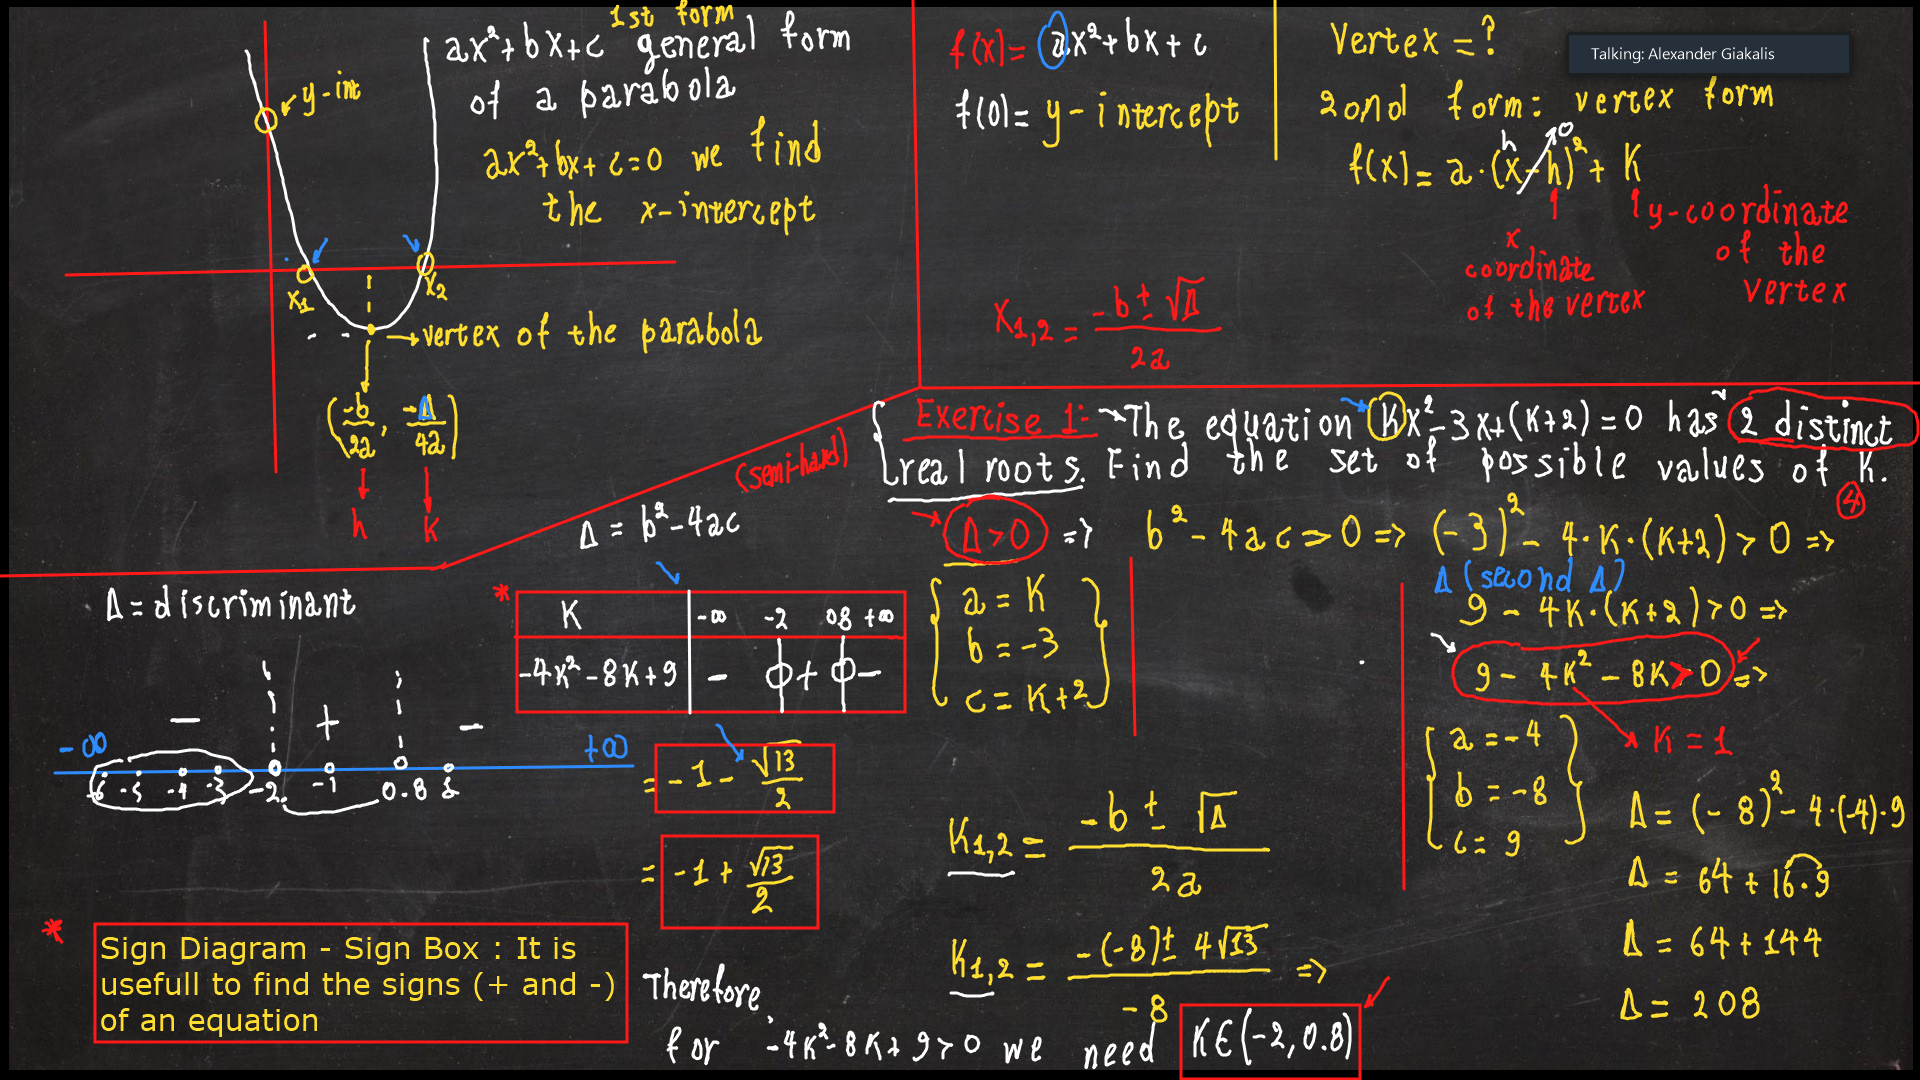 1st form
ax²+bx+c general form
of a parabola
ax²+bx+c=0 we find
the x-intercept
y-int
x₁
x₂
→vertex of the parabola
(-b/2a, -Δ/4a)
h
K
f(x)= ax²+bx+c
f(0)= y-intercept
x₁,₂ = (-b±√Δ)/2a
Vertex =?
Talking: Alexander Giakalis
2ond form: vertex form
h
0
f(x)= a·(x-h)²+K
x
coordinate
of the vertex
y-coordinate
of the
vertex
(semi-hard)
Exercise 1: →The equation Kx²-3x+(K+2)=0 has 2 distinct
real roots. Find the set of possible values of K.
4
Δ = b²-4ac
Δ>0 => b²-4ac>0 => (-3)²-4·K·(K+2)>0 =>
Δ (second Δ)
9-4K·(K+2)>0 =>
9-4K²-8K>0 =>
K=1
a = K
b = -3
c = K+2
a = -4
b = -8
c = 9
Δ = (-8)²-4·(-4)·9
Δ = 64+16·9
Δ = 64+144
Δ = 208
Δ= discriminant
*
K -∞ -2 0.8 +∞
-4K²-8K+9 - 0 + 0 -
- + -
-∞ +∞
-6 -5 -4 -3 -2 -1 0.8
= -1-√13/2
= -1+√13/2
K₁,₂ = (-b±√Δ)/2a
K₁,₂ = (-(-8)±4√13)/-8 =>
*
Sign Diagram - Sign Box : It is
usefull to find the signs (+ and -)
of an equation
Therefore,
for -4K²-8K+9>0 we need K∈(-2,0.8)